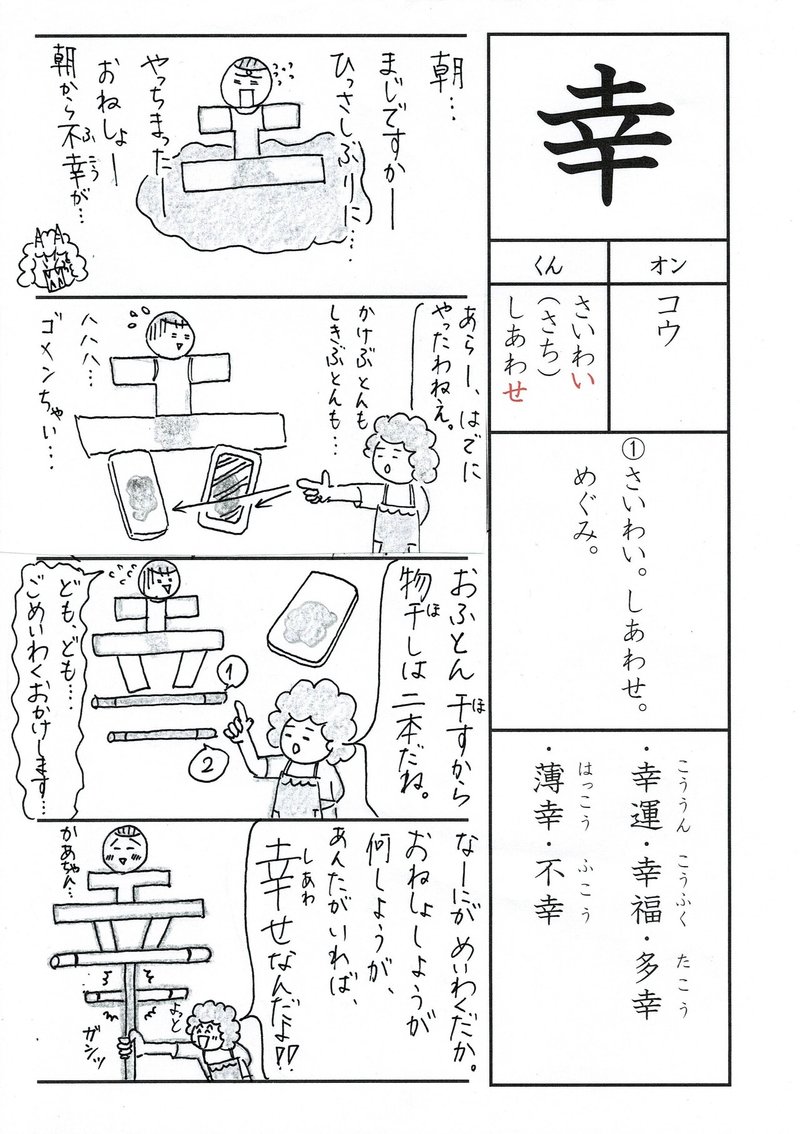 幸
オン
くん
コウ
さいわい
(さち)
しあわせ
①さいわい。しあわせ。
めぐみ。
こううん こうふく たこう
・幸運・幸福・多幸
はっこう ふこう
・薄幸・不幸
朝…
まじですかー
ひっさしぶりに…
やっちまったー
おねしょー
朝から不幸が…
ふこう
あらー、はでに
やったわねえ。
かけぶとんも
しきぶとんも…
ハハハ…
ゴメンちゃい…
おふとん干すから
ほ
物干しは二本だね。
ほ
①
②
ども、ども…
ごめいわくおかけします…
なーにがめいわくだか。
おねしょしようが
何しようが、
あんたがいれば、
幸せなんだよ!!
しあわ
かあちゃん…
よっと
ガシッ